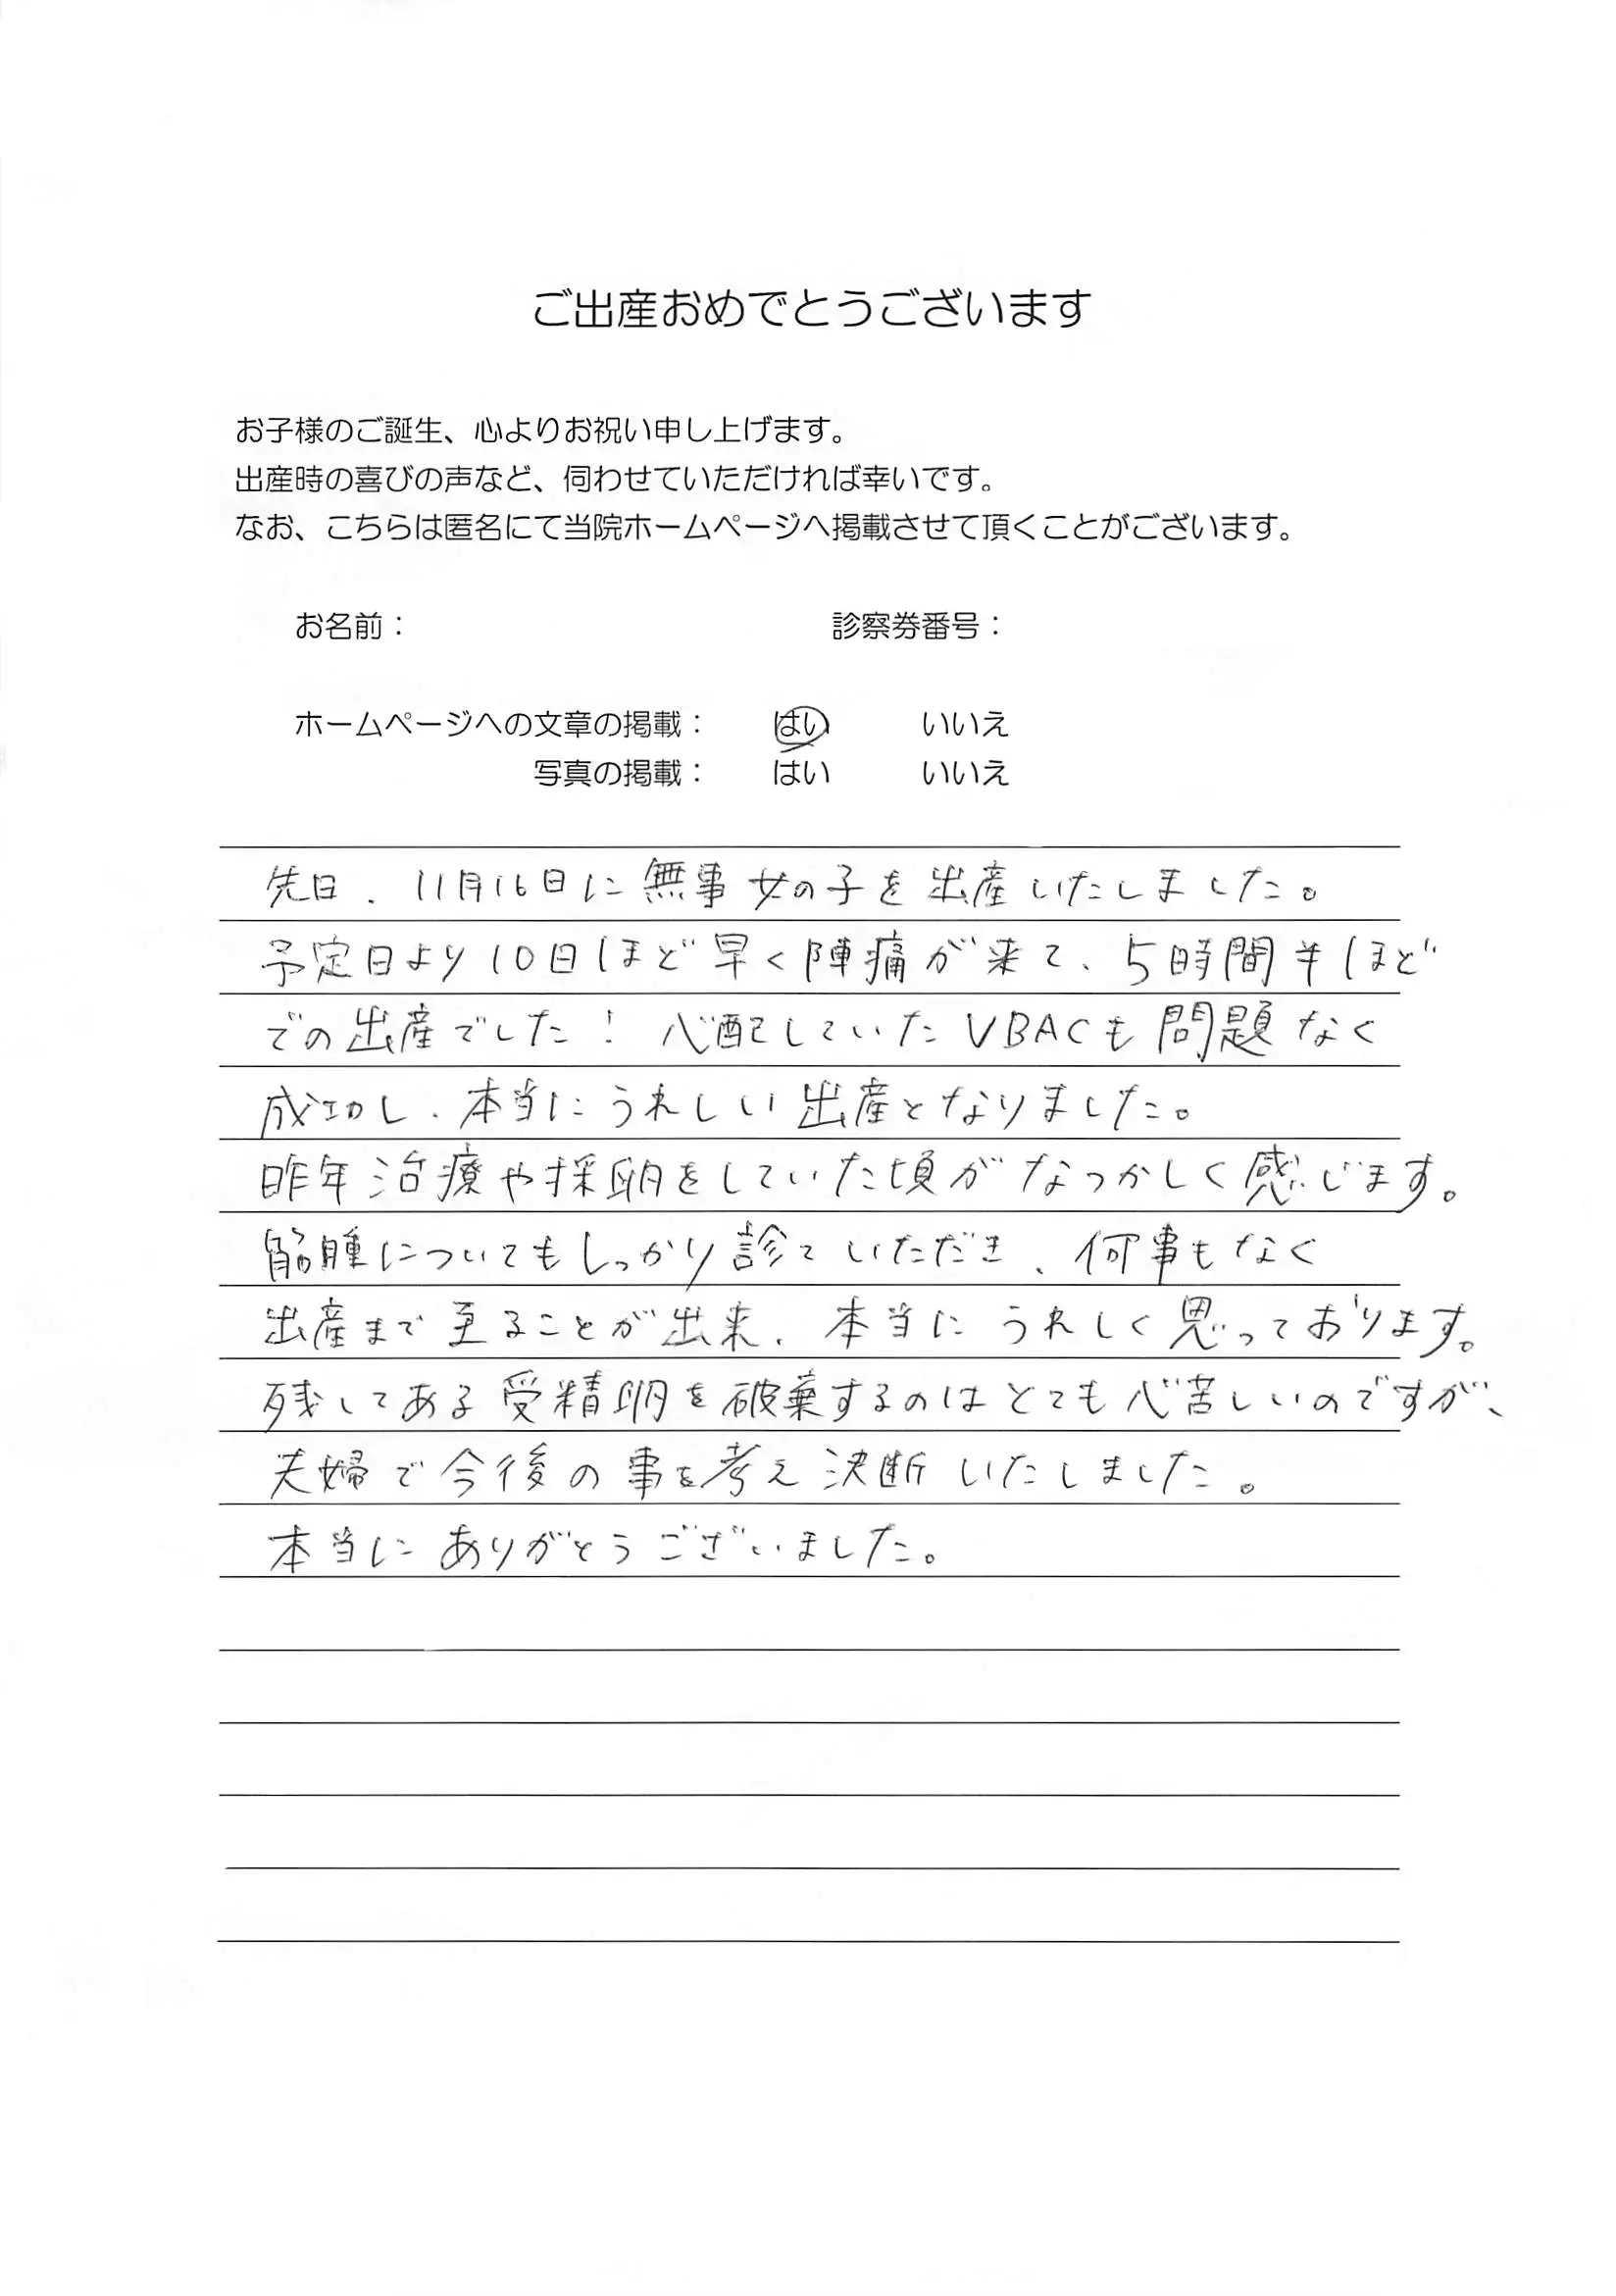 ご出産おめでとうございます
お子様のご誕生、心よりお祝い申し上げます。
出産時の喜びの声など、伺わせていただければ幸いです。
なお、こちらは匿名にて当院ホームページへ掲載させて頂くことがございます。
お名前： 診察券番号：
ホームページへの文章の掲載： はい いいえ
写真の掲載： はい いいえ
先日、11月16日に無事女の子を出産いたしました。
予定日より10日ほど早く陣痛が来て、5時間半ほど
での出産でした！ 心配していたVBACも問題なく
成功し、本当にうれしい出産となりました。
昨年治療や採卵をしていた頃がなつかしく感じます。
筋腫についてもしっかり診ていただき、何事もなく
出産まで至ることが出来、本当にうれしく思っております。
残してある受精卵を破棄するのはとても心苦しいのですが、
夫婦で今後の事を考え決断いたしました。
本当にありがとうございました。